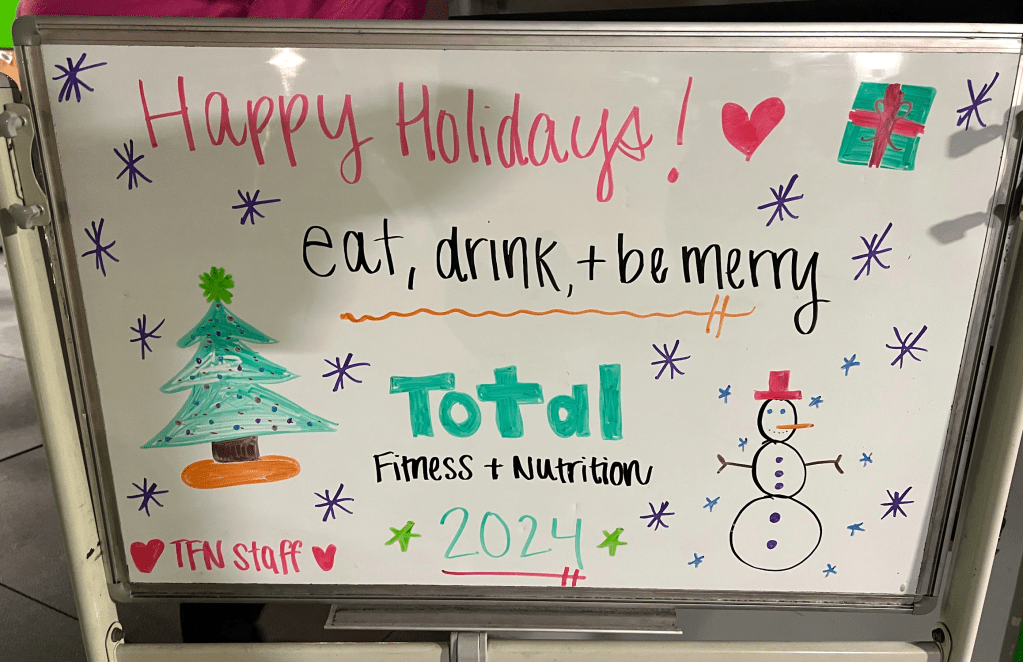 Happy Holidays!
eat, drink, + be merry
Total
Fitness + Nutrition
2024
TFN Staff